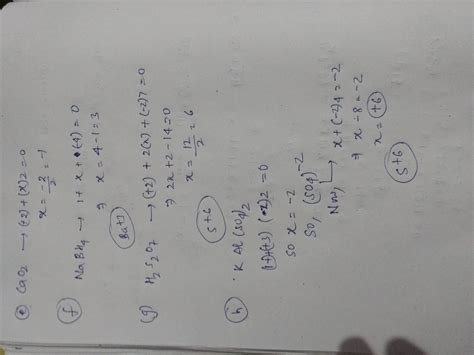 (e) CaO2 → (+2)+(x)2=0
x = -2/2 = -1
(f) NaBH4 → 1+x+(4)=0
⇒ x = 4-1=3
(g) H2S2O7 → (+2)+2(x)+(-2)7=0
⇒ 2x+2-14=0
x = 12/2 = 6
S+6
(h) KAl(SO4)2
(1)+(+3)(x)2=0
so x = -2
So, (SO4)-2
Now, → x+(-2)4=-2
⇒ x-8=-2
x = +6
S+6